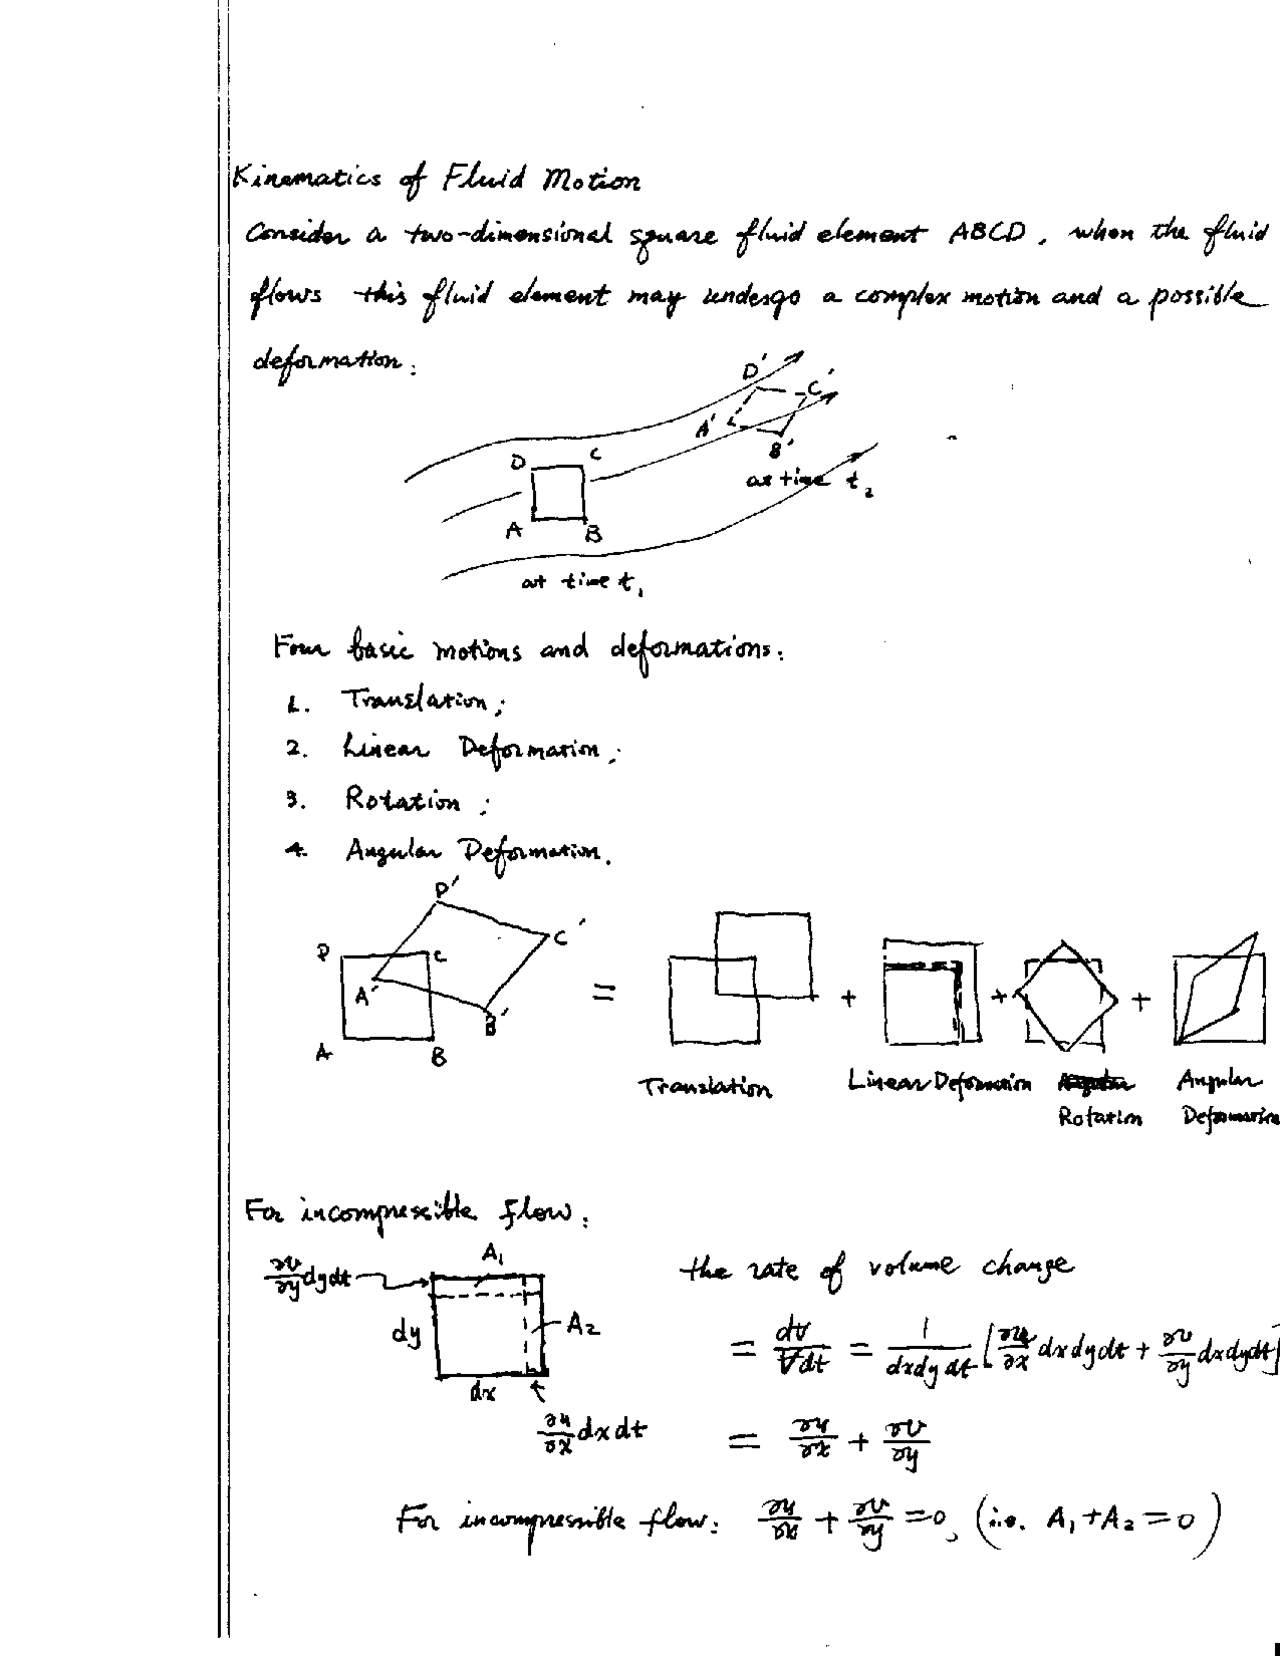 Kinematics of Fluid Motion
Consider a two-dimensional square fluid element ABCD, when the fluid
flows this fluid element may undergo a complex motion and a possible
deformation:
D'
C'
A'
B'
at time t₂
D
C
A
B
at time t₁
Four basic motions and deformations:
1. Translation;
2. Linear Deformation;
3. Rotation;
4. Angular Deformation.
D'
C'
D C
A'
B'
A B
= + + +
Translation Linear Deformation Rotation Angular Deformation
For incompressible flow:
∂v/∂y dydt
A₁
dy
A₂
dx
∂u/∂x dxdt
the rate of volume change
= dV/Vdt = 1/dxdydt [∂u/∂x dxdydt + ∂v/∂y dxdydt]
= ∂u/∂x + ∂v/∂y
For incompressible flow: ∂u/∂x + ∂v/∂y = 0, (i.e. A₁ + A₂ = 0)